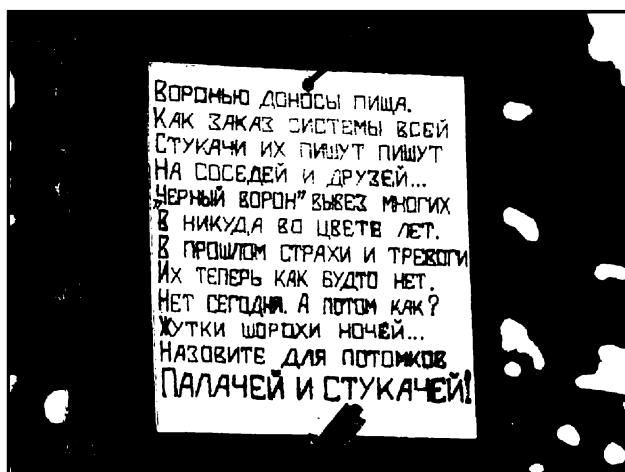 Воронью доносы пища.
Как заказ системы всей
Стукачи их пишут пишут
На соседей и друзей...
„Черный ворон" вывез многих
В никуда во цвете лет.
В прошлом страхи и тревоги
Их теперь как будто нет.
Нет сегодня. А потом как?
Жутки шорохи ночей...
Назовите для потомков
Палачей и стукачей!